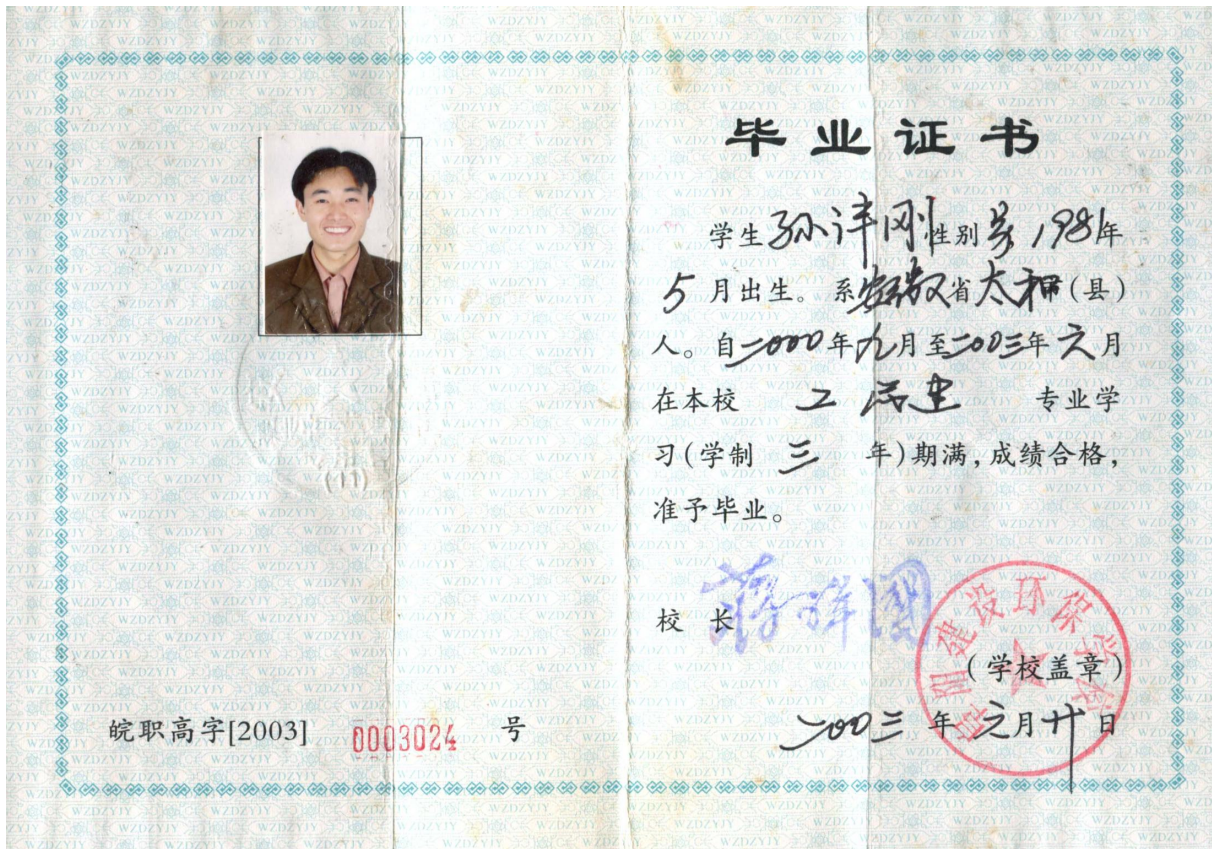 毕业证书
学生孙洋刚性别男1981年
5月出生。系安徽省太和(县)
人。自二000年九月至二00三年六月
在本校 工民建 专业学
习(学制 三 年)期满,成绩合格,
准予毕业。
校长 蒋祥国
阜阳建设环保学校
(学校盖章)
二00三年六月廿日
皖职高字[2003] 0003024 号